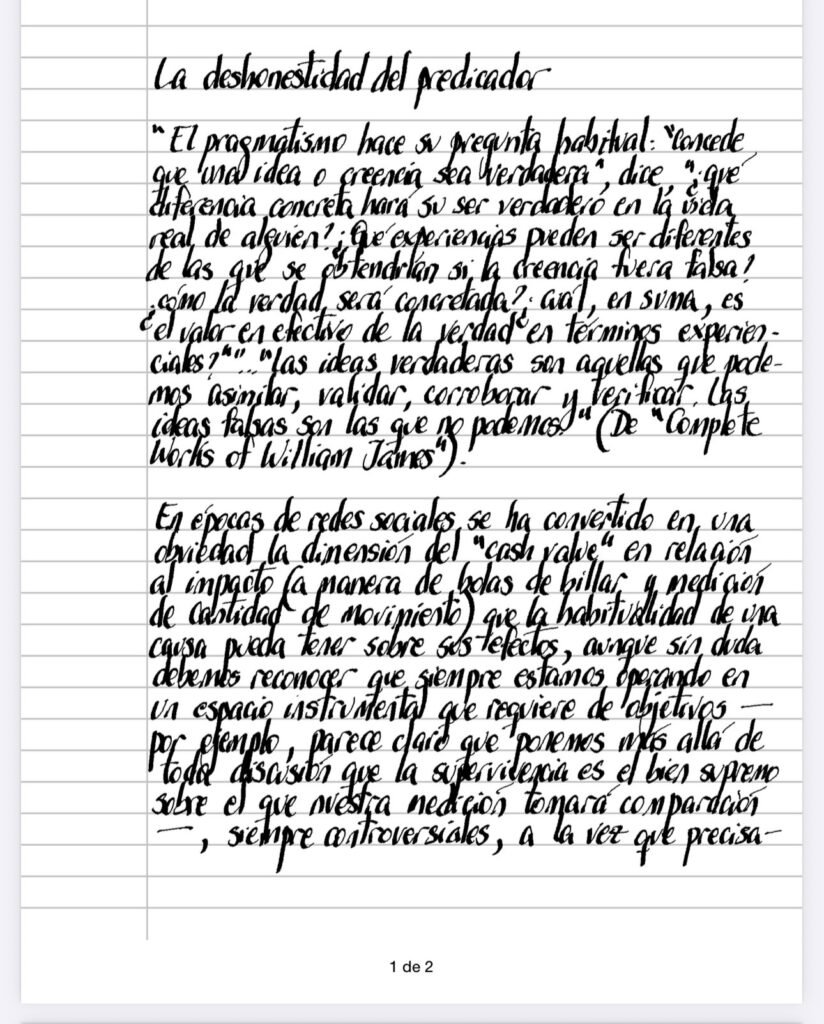 La deshonestidad del predicador
"El pragmatismo hace su pregunta habitual: "Concede
que una idea o creencia sea verdadera", dice, "¿qué
diferencia concreta hará su ser verdadero en la vida
real de alguien? ¿Qué experiencias pueden ser diferentes
de las que se obtendrían si la creencia fuera falsa?
¿cómo la verdad será concretada? ¿cuál, en suma, es
el valor en efectivo de la verdad en términos experien-
ciales?""... "Las ideas verdaderas son aquellas que pode-
mos asimilar, validar, corroborar y verificar. Las
ideas falsas son las que no podemos." (De "Complete
Works of William James").
En épocas de redes sociales se ha convertido en una
obviedad la dimensión del "cash value" en relación
al impacto (a manera de bolas de billar y medición
de cantidad de movimiento) que la habitualidad de una
causa pueda tener sobre sus efectos, aunque sin duda
debemos reconocer que siempre estamos operando en
un espacio instrumental que requiere de objetivos —
por ejemplo, parece claro que ponemos más allá de
toda discusión que la supervivencia es el bien supremo
sobre el que nuestra medición tomará comparación
—, siempre controversiales, a la vez que precisa-
1 de 2